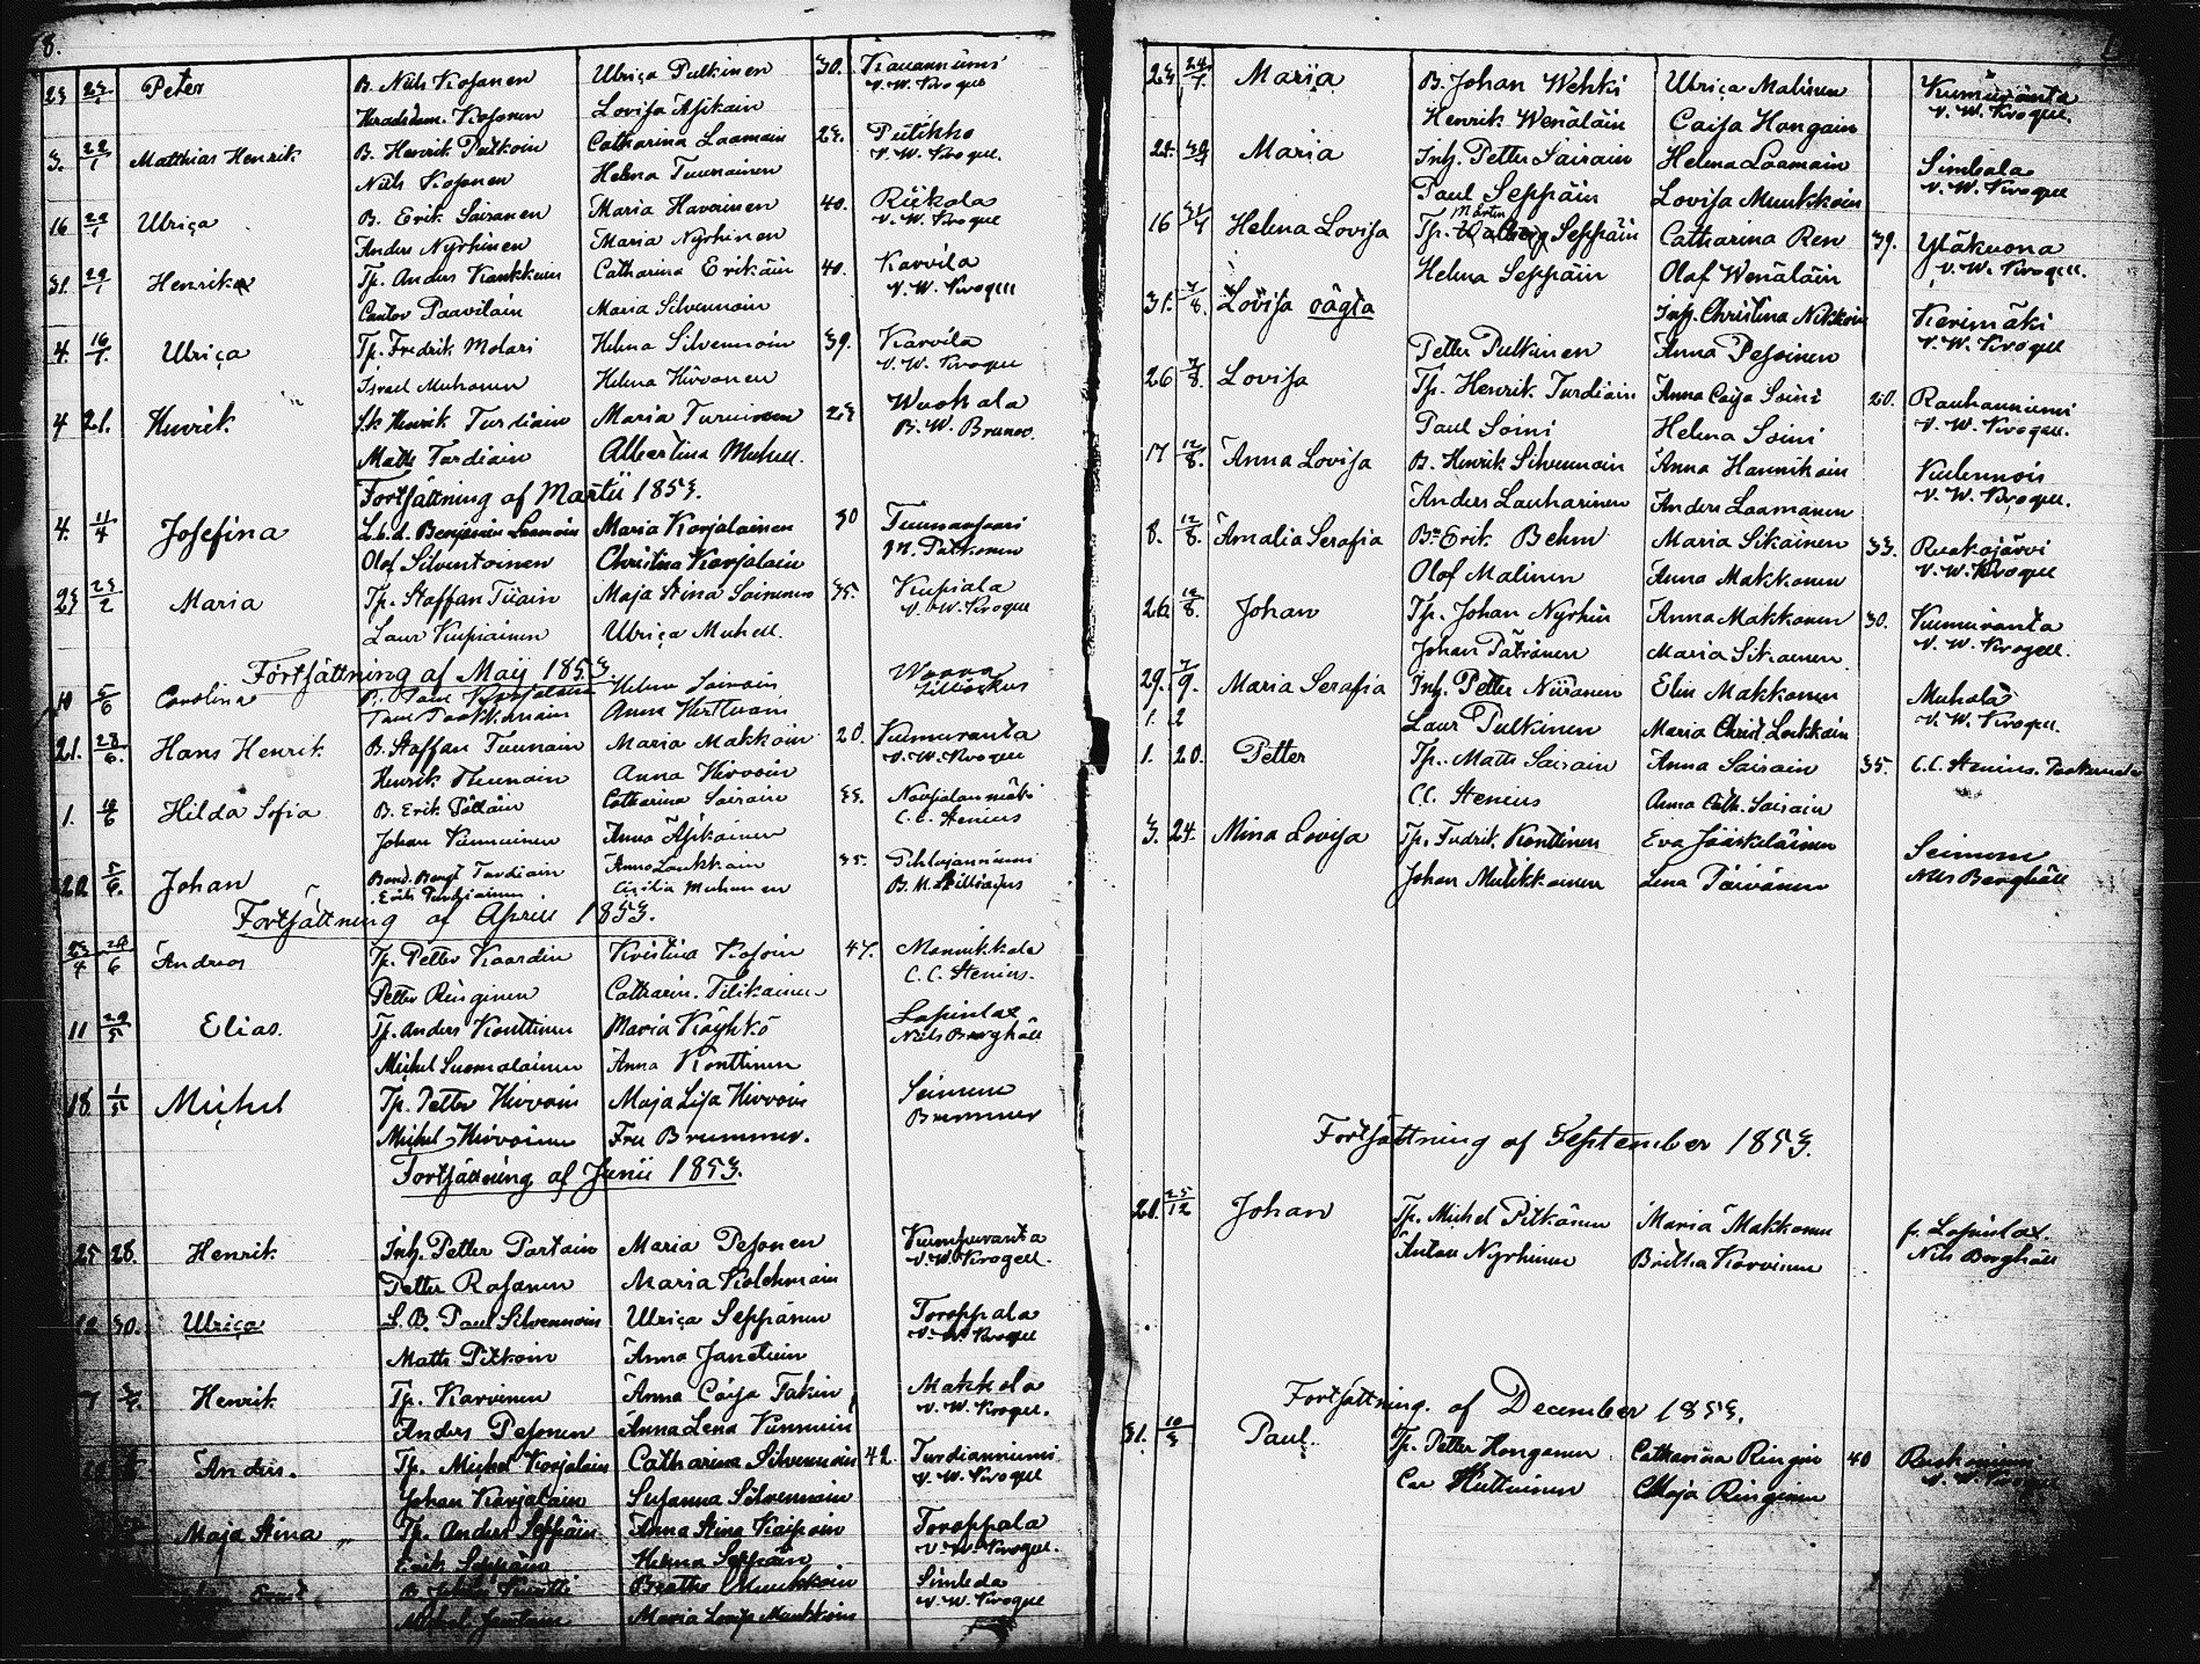 8.
23 23/1 Peter B. Nils Kosonen Ulrica Pulkinen 30. Rauanniemi
V. W. Krogell
Kosonen Lovisa Asikain
3. 22/1 Matthias Henrik B. Henrik Pulkoin Catharina Laamain 23. Putikko
V. W. Krogell.
Nils Kosonen Helena Tuunainen
16 29/1 Ulrica B. Erik Sairanen Maria Haverinen 40. Riikola
V. W. Krogell
Anders Nyrhinen Maria Nyrhinen
31. 29/1 Henrika Tp. Anders Kaukkuin Catharina Erikäin 40. Karvila
V. W. Krogell
Cantor Paavilain Maria Silvennoin
4. 16/7. Ulrica Tp. Fredrik Molari Helena Silvennoin 39. Karvila
V. W. Krogell
Israel Muhonen Helena Hirvonen
4 21. Henrik S.k Henrik Turdiain Maria Turuinen 23 Wuokala
B. W. Brunov.
Matts Turdiain Albertina Muhell.
Fortsättning af Martii 1853.
4. 11/4 Josefina L.b.d. Benjamin Laamain Maria Korjalainen 30 Tuunansaari
M. Putkonen
Olof Silventoinen Christina Karjalain
23 23/2 Maria Tp. Staffan Tiiain Maja Stina Sairanen 35. Kupiala
V. W. Krogell
Laur Kupiainen Ulrica Muhell.
Fortsättning af Maij 1853
10 5/6 Carolina Paul Karjalain Helena Sairain Woara
Lilliockus
Paul Paakkunain Anna Herttuain
21. 28/6. Hans Henrik B. Staffan Tuunain Maria Makkoin 20. Kumuranta
V. W. Krogell
Henrik Tuunain Anna Hirvoin
1. 10/6 Hilda Sofia B. Erik Pölläin Catharina Sairain 33. Naupalanmäki
C. C. Stenius
Johan Kinnunen Anna Asikainen
20. 5/6. Johan Bond. Bengt Turdiain Anna Laukkain 35. Pihlajaniemi
B. M. Lilliocius
Erik Turdiainen Cicilia Muhonen
Fortsättning af Aprill 1853.
23/4 20/6 Andreas Tp. Petter Kaardin Kristina Kosoin 47. Mannikkala
C. C. Stenius.
Petter Ringinen Catharin. Tilikainen
11 29/5 Elias. Tp. Anders Konttinen Maria Käyhkö Lapinlax
Nils Berghäll
Michel Suomalainen Anna Konttinen
18 1/5 Michel Tp. Petter Hirvoin Maja Lisa Hirvoin Seimene
Brummer
Michel Hirvoinen Fru Brummer.
Fortsättning af Junii 1853.
25 28. Henrik Inh. Petter Partain Maria Pesonen Kumpuranta
V. W. Krogell.
Petter Rosonen Maria Kolehmain
12 30. Ulrica S. B. Paul Silvennoin Ulrica Seppänen Toroppala
V. W. Krogell
Matts Pitkoin Anna Janetuin
7 Henrik Tp. Karvinen Anna Caisa Takin Makkola
V. W. Krogell.
Anders Pesonen Anna Lena Kinnunin
Andrs. Tp. Michel Korjalain Catharina Silvennoin 42. Turdianniemi
V. W. Krogell
Johan Karjalain Susanna Silvennoin
Maja Stina Tp. Anders Seppäin Anna Stina Kaipain Toroppala
V. W. Krogell.
Erik Seppäin Helena Seppäin
B. Beatha Muukkoin Simleda
V. W. Krogell
Maria Lovisa Muukkoin
23 24/7. Maria B. Johan Wehki Ulrica Malinen Kumuranta
V. W. Krogell.
Henrik Wenäläin Caisa Hongain
22. 30/7 Maria Inh. Petter Sairain Helena Laamain Simbala
V. W. Krogell
Paul Seppäin Lovisa Muukkoin
16 31/7 Helena Lovisa Tp. Mårten Seppäin Catharina Ren 39. Yläkuona
V. W. Krogell.
Helena Seppäin Olof Wenäläin
31. 7/8. Lovisa oägta Inh. Christina Nikkoin Kerimäki
V. W. Krogell
Petter Pulkinen Anna Pesoinen
26 7/8. Lovisa Tp. Henrik Turdiain Anna Caisa Soini 20. Rauhanniemi
V. W. Krogell.
Paul Soini Helena Soini
17 12/8. Anna Lovisa B. Henrik Silvennoin Anna Hannikain Kulennois
V. W. Krogell.
Anders Lauharinen Anders Laamanen
8. 12/8. Amalia Serafia Bn Erik Behm Maria Sikainen 33. Ruokojärvi
V. W. Krogell
Olof Malinen Anna Makkonen
26. 12/8. Johan Tp. Johan Nyrhin Anna Makkonen 30. Kumuranta
V. W. Krogell.
Johan Päivänen Maria Sikaenen.
29. 7/9. Maria Serafia Inh. Petter Niiranen Elin Makkonen Muhola
V. W. Krogell.
1. 2 Laur Pulkinen Maria Christ Laukkain
1. 20. Petter Tp. Matts Sairain Anna Sairain 35. C.C. Stenius.
C.C. Stenius Anna Cath. Sairain
3. 24. Mina Lovisa Tp. Fredrik Konttinen Eva Jääskeläinen Seimene
Nils Berghäll
Johan Mulikkainen Lena Päivänen
Fortsättning af September 1853.
20. 25/12 Johan Tp. Michel Pitkänen Maria Makkonen fr. Lapinlax.
Nils Berghäll
Anton Nyrhinen Britha Korvinen
Fortsättning. af December 1853.
31. 10/3 Paul. Tp. Petter Honganen Catharina Ringin 40 Ruskoniemi
V. W. Krogell
Car Huttuinen Maja Ringinen